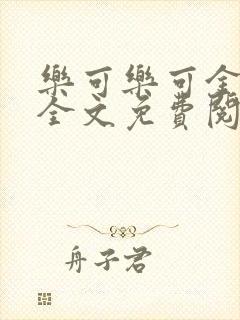 樂可樂可全
全文免費閱
舟子君